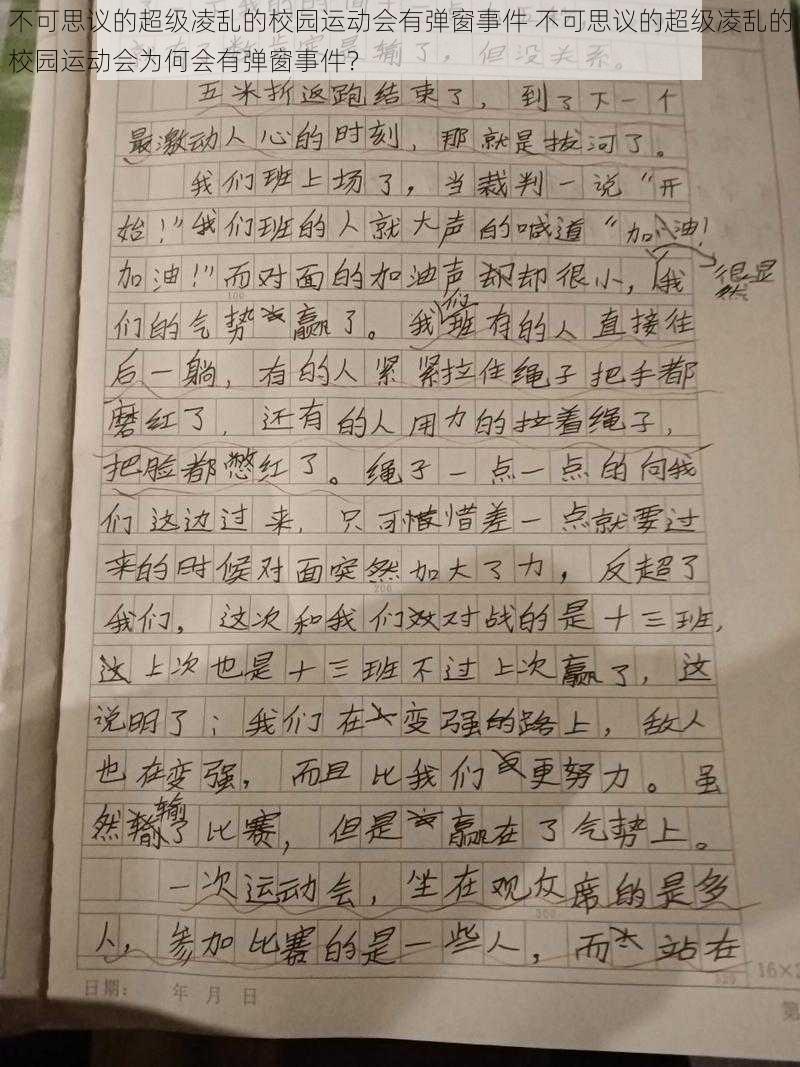 不可思议的超级凌乱的校园运动会有弹窗事件 不可思议的超级凌乱的
校园运动会为何会有弹窗事件？
输了，但没关系。
五米折返跑结束了，到了下一个
最激动人心的时刻，那就是拔河了。
我们班上场了，当裁判一说“开
始！”我们班的人就大声的喊道“加油！
加油！”而对面的加油声却很小，我
很显然
100
们的气势赢了。我们班有的人直接往
后一躺，有的人紧紧拉住绳子把手都
磨红了，还有的人用力的拉着绳子，
把脸都憋红了。绳子一点一点的向我
们这边过来，只可惜差一点就要过
来的时候对面突然加大了力，反超了
200
我们，这次和我们对战的是十三班，
这上次也是十三班不过上次赢了，这
说明了：我们在变强的路上，敌人
也在变强，而且比我们更努力。虽
然输了比赛，但是赢在了气势上。
一次运动会，坐在观众席的是多
300
人，参加比赛的是一些人，而站在
320
16×
日期： 年 月 日
第